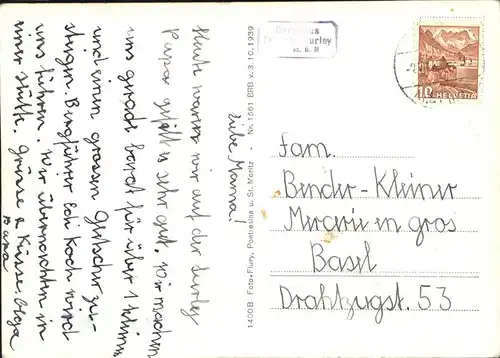 Liebe Mama!
Heute waren wir auf der Surley
Papa gefällt es sehr gut. Wir machen
uns gerade bereit für über 1 kleinen
und einen grossen Gletscher zu
steigen. Bergführer Edi Koch wird
uns führen. Wir übernachten in
einer Hütte. Grüsse & Küsse. Olga
Papa
1400 B Foto-Flury, Pontresina u. St. Moritz - Nr. 1561 BRB v. 3. 10. 1939
Surley
m. ü. M
10 HELVETIA
Fam.
Bender-Kleiner
Mercerie en gros
Basel
Drahtzugst. 53